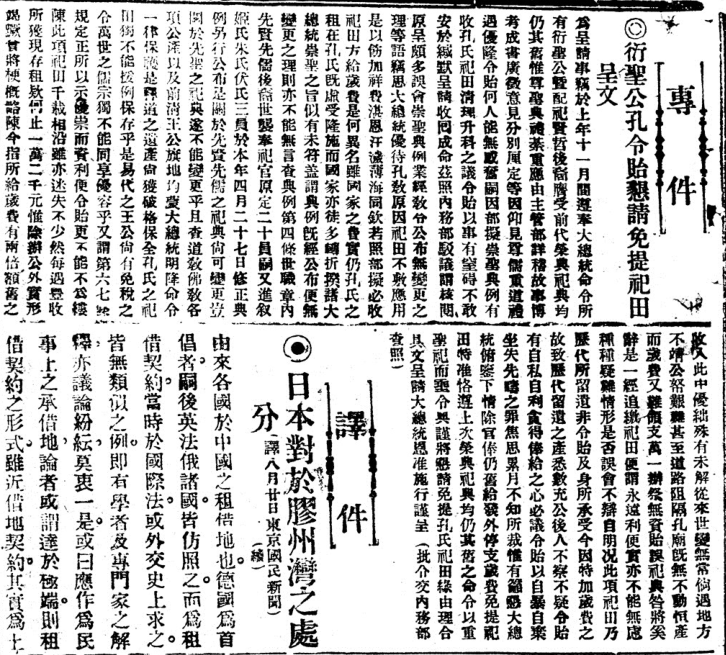 專件
◎衍聖公孔令貽懇請免提祀田
呈文
爲呈請事竊於上年十一月間遵奉大總統命令所
有衍聖公暨配祀賢哲後裔膺受前代榮典祀典均
仍其舊惟尊聖典禮綦重應由主管部詳稽故事博
考成書廣徵意見分別厘定等因仰見尊儒重道禮
遇優隆令貽何人能無感奮嗣因部擬崇聖典例有
收孔氏祀田清理升科之議令貽以事有窒碍不敢
安於緘默呈請收回成命茲照內務部駁議謂核閱
原呈頗多誤會崇聖典例業經敎令公布無變更之
理等語竊思大總統優待孔敎原因祀田不敷應用
是以飭加祥費淇恩汪濊薄海同欽若照部擬必收
祀田方給歲費是何異名雖國家之費實仍孔氏之
租在孔氏旣虛受隆施而國家亦徒多轉折揆諸大
總統崇聖之旨似有未符蓋謂典例旣經公布便無
變更之理則亦不能無言查典例第四條世職章內
先賢先儒後裔世襲奉祀官原定二十員嗣又進叙
姬氏朱氏伏氏三員於本年四月二十七日修正典
例另行公布是關於先賢先儒之祀典尙可變更豈
關於先聖之祀典遂不能變更乎且查道敎佛敎各
項公產以及前淸王公旗地均蒙大總統明降命令
一律保護是釋道之遺產尙獲破格保全孔氏之祀
田獨不能援例保存乎是易代之王公尙有免稅之
令萬世之儒宗獨不能同享優容乎又謂第六七條
規定正所以示優崇而資利便令貽更不能不爲縷
陳此項祀田千載相沿雖亦迭失不少然每遇豐收
所獲現存租欵何止一萬二千元惟除辦公外實形
竭蹶曾將梗概略陳今指所給歲費有兩倍額舊之
收入此中優絀殊有未解從來世變無常倘遇地方
不靖公帑艱難甚至道路阻隔孔廟旣無不動恒產
而歲費又雖領支萬一辦祭無資貽誤祀典咎將奚
辭是一經追繳祀田便謂永遠利便實亦不能無慮
種種疑難情形是否誤會不辯自明况此項祀田乃
歷代所留遺非令貽及身所承受今因特加歲費之
故致歷代留遺之產悉數充公後人不察不疑令貽
有自私自利貪得俸給之心必議令貽以自暴自棄
坐失先疇之罪焦思累月不知所裁惟有籲懇大總
統俯鑒下情除官俸仍舊給發外停支歲費免提祀
田特准恪遵上次榮典祀典均仍其舊之命令以重
聖祀而聯令典謹將懇請免提孔氏祀田緣由理合
具文呈請大總統恩准施行謹呈（批令交內務部
查照）
譯件
◉日本對於膠州灣之處
分（譯八月廿日東京國民新聞）（續）
由來各國於中國之租借地也德國爲首
倡者嗣後英法俄諸國皆仿照之而爲租
借契約當時於國際法或外交史上求之
皆無類似之例即有學者及專門家之解
釋亦議論紛紜莫衷一是或曰應作爲民
事上之承借地論者或謂達於極端則租
借契約之形式雖近借地契約其實爲土